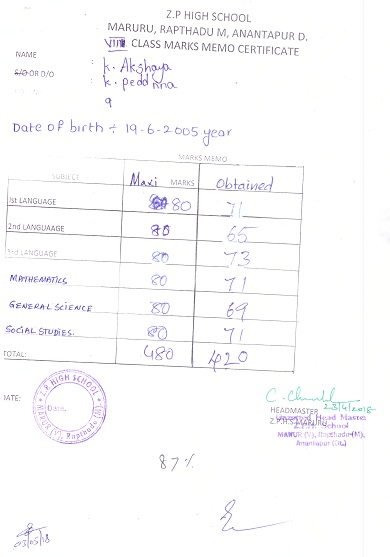 Z.P HIGH SCHOOL
MARURU, RAPTHADU M, ANANTAPUR D.
VIII CLASS MARKS MEMO CERTIFICATE
NAME : K. Akshaya
S/O OR D/O : K. peddinna
9
Date of birth ÷ 19-6-2005 year
MARKS MEMO
SUBJECT Maxi MARKS Obtained
1st LANGUAGE 80 71
2nd LANGUAAGE 80 65
3rd LANGUAGE 80 73
MATHEMATICS 80 71
GENERAL SCIENCE 80 69
SOCIAL STUDIES. 80 71
TOTAL: 480 420
DATE:
Z.P HIGH SCHOOL
Date.
MARUR (V), Rapthadu (M)
23/4/2018
HEADMASTER
Z.P.H.S MARURU
Head Master
Z.P.H. School
MARUR (V), Rapthadu(M),
Anantapur (Dt.)
87%
03/05/18